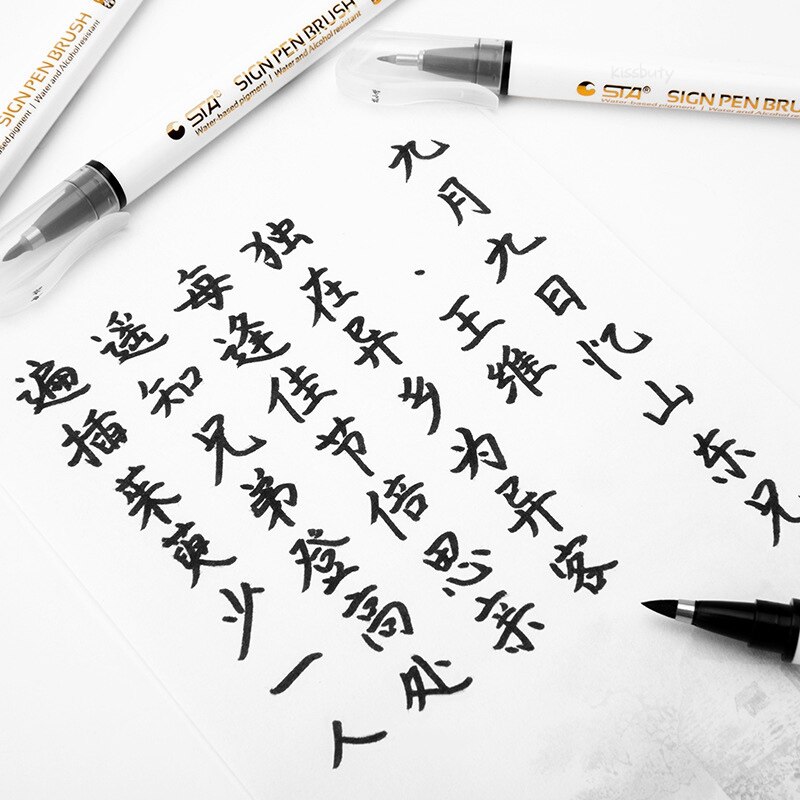 九月九日忆山东兄
·王维
独在异乡为异客
每逢佳节倍思亲
遥知兄弟登高处
遍插茱萸少一人
SIGN PEN BRUSH
Water and Alcohol resistant
STA® SIGN PEN BRUSH
Water-based pigment | Water and Alcohol resistant
STA® SIGN PEN BRU
Water-based pigment | Water
kissbuty